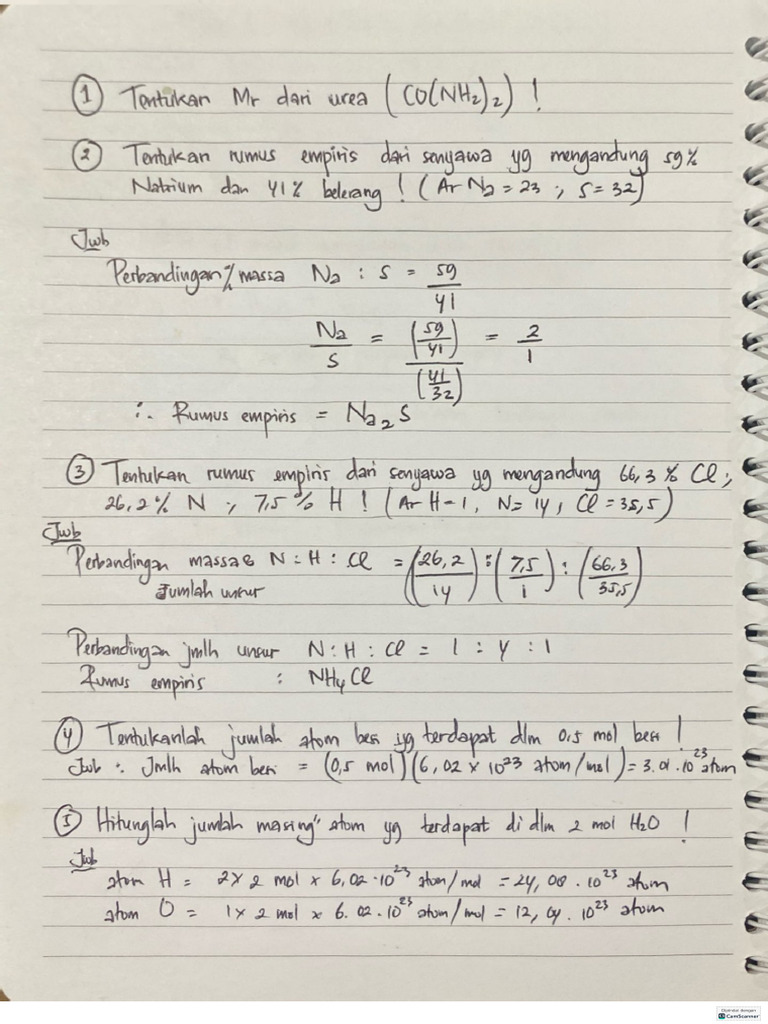 ① Tentukan Mr dari urea (CO(NH₂)₂) !
② Tentukan rumus empiris dari senyawa yg mengandung 59%
Natrium dan 41% belerang ! (Ar Na = 23 ; S = 32)
Jwb
Perbandingan % massa Na : S = 59/41
Na/S = (59/41)/(41/32) = 2/1
∴ Rumus empiris = Na₂S
③ Tentukan rumus empiris dari senyawa yg mengandung 66,3 % Cl ;
26,2 % N ; 7,5 % H ! (Ar H = 1, N = 14, Cl = 35,5)
Jwb
Perbandingan massa N : H : Cl = (26,2/14) : (7,5/1) : (66,3/35,5)
Jumlah unsur
Perbandingan jmlh unsur N : H : Cl = 1 : 4 : 1
Rumus empiris : NH₄Cl
④ Tentukanlah jumlah atom besi yg terdapat dlm 0,5 mol besi !
Jwb : Jmlh atom besi = (0,5 mol)(6,02 × 10²³ atom/mol) = 3.01 . 10²³ atom
⑤ Hitunglah jumlah masing" atom yg terdapat di dlm 2 mol H₂O !
Jwb
atom H = 2 × 2 mol × 6,02 · 10²³ atom/mol = 24,08 . 10²³ atom
atom O = 1 × 2 mol × 6.02 . 10²³ atom/mol = 12,04 . 10²³ atom
Dipindai dengan
CamScanner